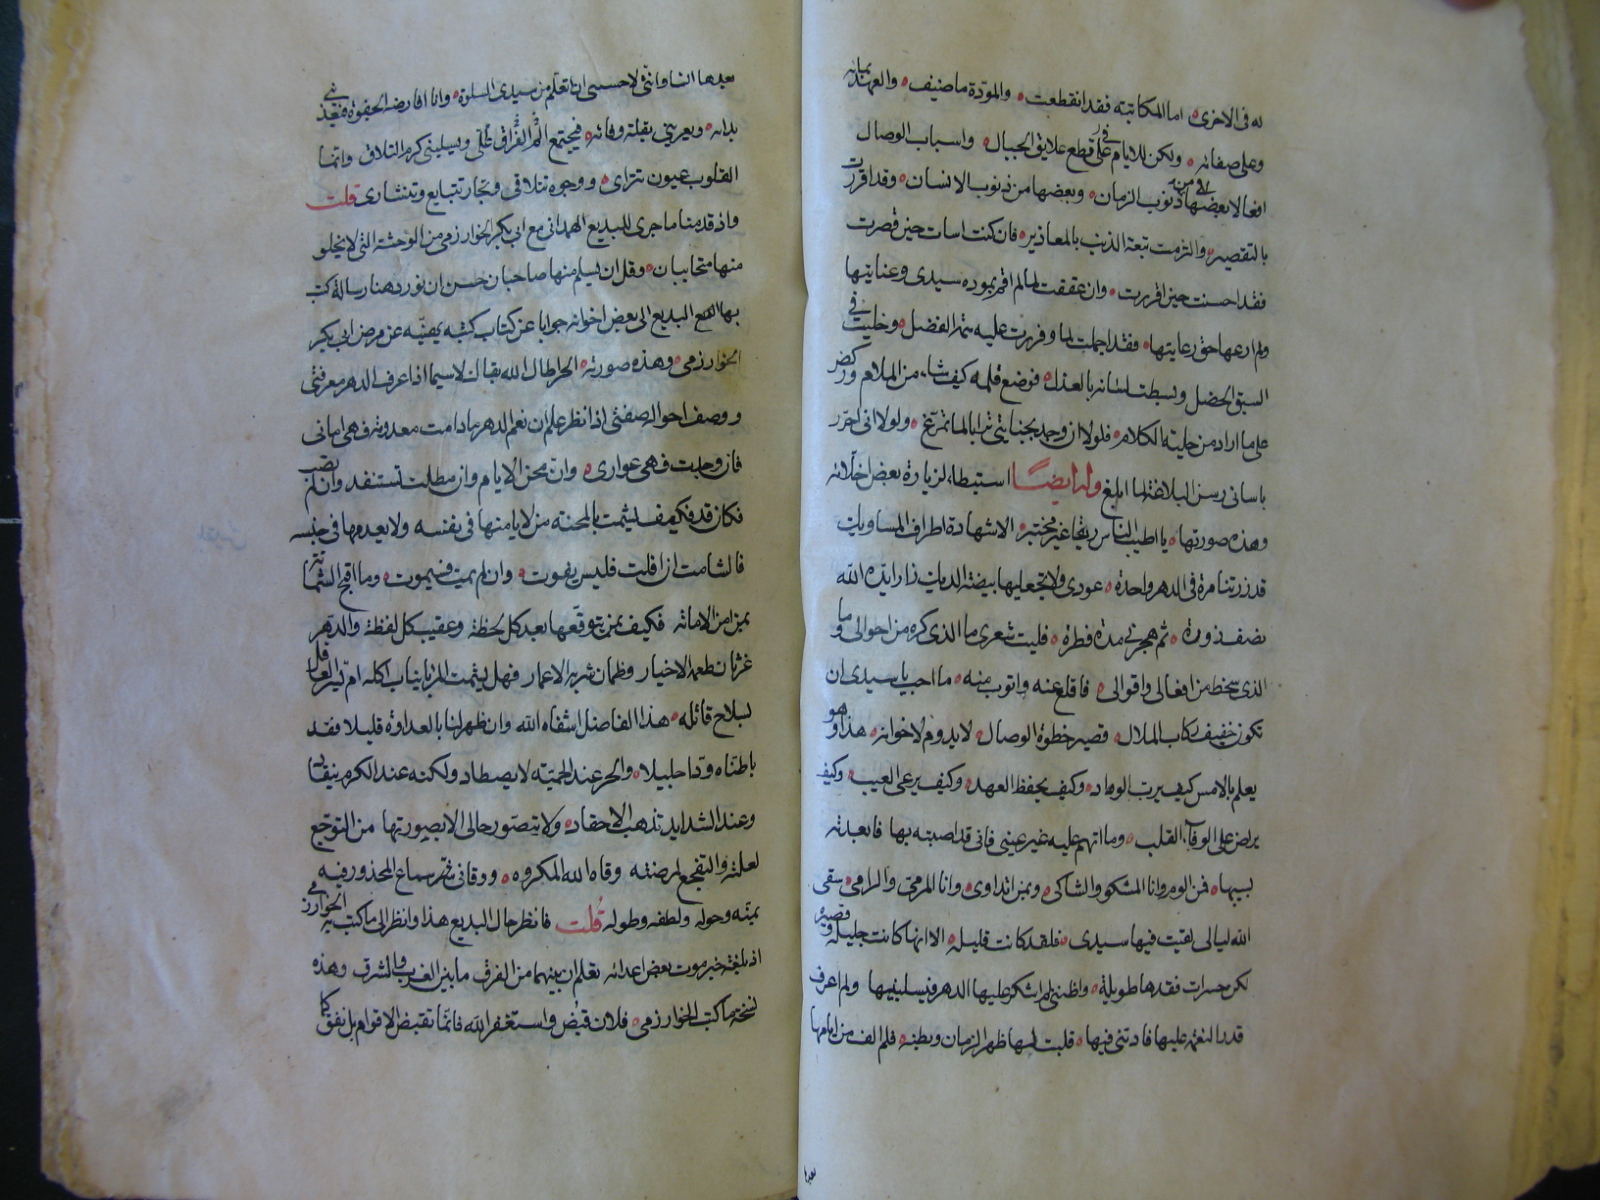 له فى الاخرى اما المكاتبة فقد انقطعت والمودة ما صنيف والعهد بمائه
وعلى صفائه ولكن للايام فى قطع علايق الحبال واسباب الوصال
افعالا بعضها من ذنوب الزمان وبعضها من ذنوب الانسان وقد اقررت
بالتقصير والتزمت تبعة الذنب بالمعاذير فان كنت اسات حين قصرت
فقد احسنت حين اقررت وان عققت لما لم اقم بموده سيدى وعنايتها
ولم ارعها حق رعايتها فقد اجملت لما وفرت عليه ثمرة الفضل وخليت فى
السبق الخصل وبسطت لسانه بالعذل فوضع قلمه كيف شاء من الملام وركض
على ما اراد من حلية الكلام فلولا ان وجد بجنايتى ترابا لما تمرغ ولولا انى احرر
باسانى رسن البلاغة لما ابلغ وله ايضا استبطاء لزيارة بعض اخلائه
وهذه صورتها يا اطيب الناس ريقا غير مختبر الا شهادة اطراف المساويك
قد زرتنا مرة فى الدهر واحدة عودى ولا تجعليها بيضة الديك زار ايده الله
نصف زورة ثم هجرنى مدة فطرة فليت شعرى ما الذى كره من احوالى وما
الذى سخط من افعالى واقوالى فاقلع عنه واتوب منه ما احب يا سيدى ان
تكون خفيف ركاب الملال قصير خطوة الوصال لا يدوم لاخوانه هذا وهو
يعلم بالامس كيف يرب الوداد وكيف يحفظ العهد وكيف يرعى العيب وكيف
يربض على الوفاء القلب وما اتهم عليه غير عينى فانى قد اصبته بها فابعدته
بسببها فمن الوم وانا المشكو والشاكى وبمن اتداوى وانا المرمى والرامى سقى
الله ليالى لقيت فيها سيدى فلقد كانت قليلة الا انها كانت جليلة وقصيرة
لكن حسرات فقدها طويلة واظننى لم اشكر عليها الدهر فيسلبنيها ولم اعرف
قدر النعمة عليها فادتنى فيها قلبت لها ظهر الزمان وبطنه فلم الف من ايامها
بعدها
بعدها انسا وانثى لاحسب ان تعلم من سيدى السلوة وانا اقارضه الجفوة فيعذ
بدائه ويعزينى بقلة وفائه فيجتمع الم الفراق على ويسلبنى كرم التلاق وانما
القلوب عيون تتراى ووجوه تتلاقى وتجار تتبايع وتتشارى قلت
واذ قدمنا ما جرى للبديع الهمدانى مع ابى بكر الخوارزمى من الوحشة التى لا يخلو
منها متحابيان وقل ان يسلم منها صاحبان حسن ان نورد هنا رسالة كتب
بها البديع الى بعض اخوانه جوابا عن كتاب كتبه يهنيه عن مرض ابى بكر
الخوارزمى وهذه صورته الحر اطال الله بقاك لا سيما اذا عرف الدهر معرفتى
ووصف احواله صفتى اذا نظر علم ان نعم الدهر ما دامت معدومة فهى امانى
فان وجدت فهى عوارى وان محن الايام وان مطلت تستنفد وان لم تصب
فكان قد فكيف يشمت بالمحنة من لا يامنها فى نفسه ولا يعدمها فى جنسه
فالشامت ان افلت فليس يفوت وان لم يمت فسيموت وما اقبح الشماتة
بمن امن الاماتة فكيف بمن يتوقعها بعد كل لحظة وعقيب كل لفظة والدهر
غرثان طعمه الاخيار وظمان شربه الاعمار فهل يشمت المرء بانياب اكله ام يسر العاقل
بسلاح قاتله هذا الفاضل اشفاه الله وان ظهر لنا بالعداوة قليلا فقد
باطناه ودا جليلا والحر عند الحمية لا يصطاد ولكنه عند الكرم ينقاد
وعند الشدايد تذهب الاحقاد ولا تتصور حالى الا بصورتها من التوجع
لعلته والتفجع لمرضته وقاه الله المكروه ووقانى سماع المحذور فيه
بمنه وحوله ولطفه وطوله قلت فانظر حال البديع هذا وانظر الى ما كتب به الخوارزمى
اذ بلغه خبر موت بعض اعدائه تعلم ان بينهما من الفرق ما بين الغرب والشرق وهذه
نسخة ما كتب الخوارزمى فلان قبض واستغفر الله فانما تقبض الاقوام بل نفق كما